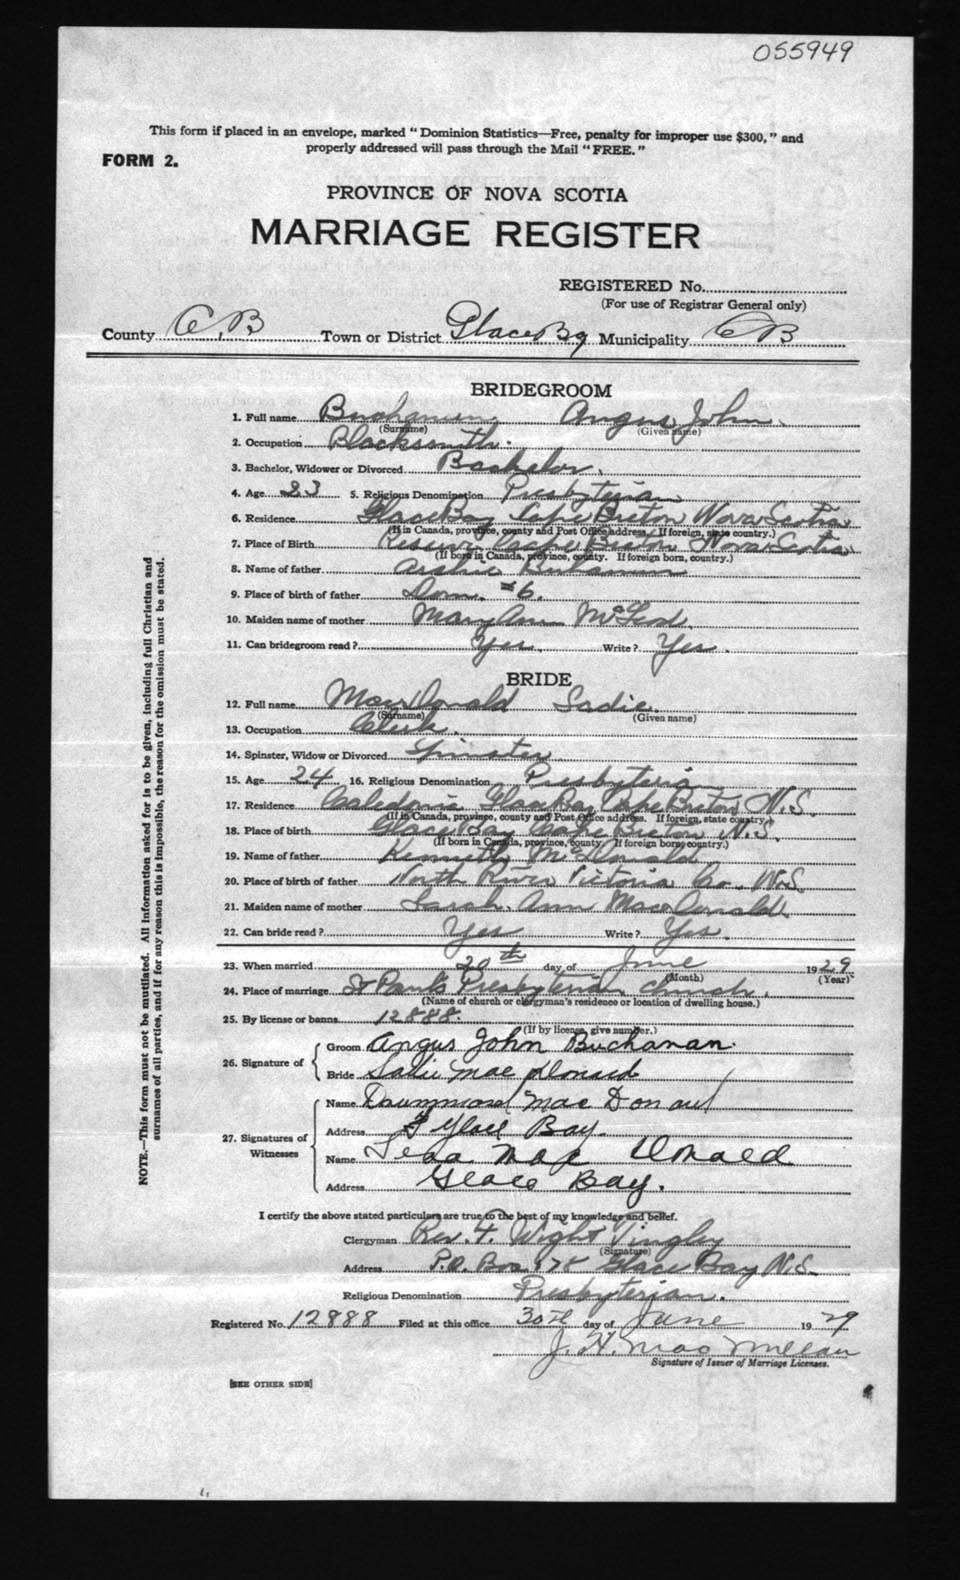 055949
This form if placed in an envelope, marked "Dominion Statistics—Free, penalty for improper use $300," and
properly addressed will pass through the Mail "FREE."
FORM 2.
PROVINCE OF NOVA SCOTIA
MARRIAGE REGISTER
REGISTERED No.
(For use of Registrar General only)
County C.B. Town or District Glace Bay Municipality CB
BRIDEGROOM
1. Full name Buchanan Angus John.
(Surname) (Given name)
2. Occupation Blacksmith.
3. Bachelor, Widower or Divorced Bachelor.
4. Age 23 5. Religious Denomination Presbyterian
6. Residence Glace Bay Cape Breton Nova Scotia
(If in Canada, province, county and Post Office address. If foreign, state country.)
7. Place of Birth Reserve Cape Breton Nova Scotia
(If born in Canada, province, county. If foreign born, country.)
8. Name of father Archie Buchanan
9. Place of birth of father Dom. #6.
10. Maiden name of mother Mary Ann McLeod.
11. Can bridegroom read? Yes. Write? Yes.
BRIDE
12. Full name MacDonald Sadie
(Surname) (Given name)
13. Occupation Clerk.
14. Spinster, Widow or Divorced Spinster
15. Age 24 16. Religious Denomination
17. Residence Caledonia Glace Bay Cape Breton N.S.
(If in Canada, province, county and Post Office address. If foreign, state country.)
18. Place of birth Glace Bay Cape Breton N.S.
(If born in Canada, province, county. If foreign born, country.)
19. Name of father Kenneth McDonald
20. Place of birth of father North River Victoria Co. N.S.
21. Maiden name of mother Sarah Ann MacDonald.
22. Can bride read? Yes Write? Yes.
23. When married 20th day of June 1929
(Month) (Year)
24. Place of marriage St Paul's Presbyterian Church.
(Name of church or clergyman's residence or location of dwelling house.)
25. By license or banns 12888.
(If by license, give number.)
26. Signature of
Groom Angus John Buchanan.
Bride Sadie Mac Donald
27. Signatures of Witnesses
Name Drummond Mac Donald
Address Glace Bay.
Name Mac Donald
Address Glace Bay.
I certify the above stated particulars are true to the best of my knowledge and belief.
Clergyman Rev. F. Wight Tingley
(Signature)
Address P.O. Box Glace Bay N.S.
Religious Denomination Presbyterian.
Registered No. 12888 Filed at this office 30th day of June 1929
J. H. Mac Millan
Signature of Issuer of Marriage Licenses.
[SEE OTHER SIDE]
NOTE.—This form must not be mutilated. All information asked for is to be given, including full Christian and
surnames of all parties, and if for any reason this is impossible, the reason for the omission must be stated.